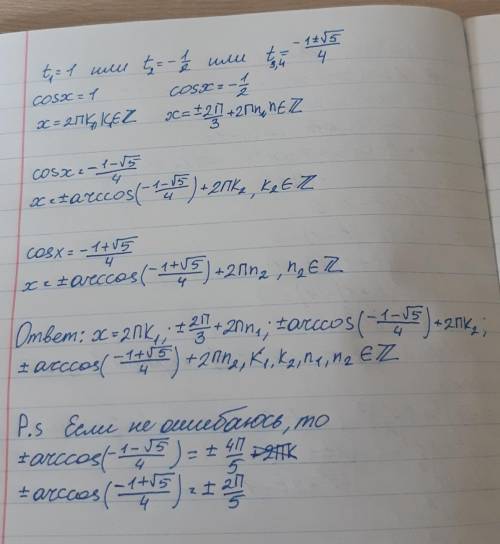 t₁=1 или t₂=-1/2 или t₃,₄=(-1±√5)/4
cosx=1 cosx=-1/2
x=2ПК₁, К₁∈ℤ x=±2П/3+2Пn₁, n∈ℤ
cosx=(-1-√5)/4
x=±arccos((-1-√5)/4)+2Пk₂, k₂∈ℤ
cosx=(-1+√5)/4
x=±arccos((-1+√5)/4)+2Пn₂, n₂∈ℤ
Ответ: x=2ПК₁; ±2П/3+2Пn₁; ±arccos((-1-√5)/4)+2Пk₂;
±arccos((-1+√5)/4)+2Пn₂, К₁, k₂, n₁, n₂ ∈ℤ
P.s Если не ошибаюсь, то
±arccos((-1-√5)/4)=±4П/5
±arccos((-1+√5)/4)=±2П/5